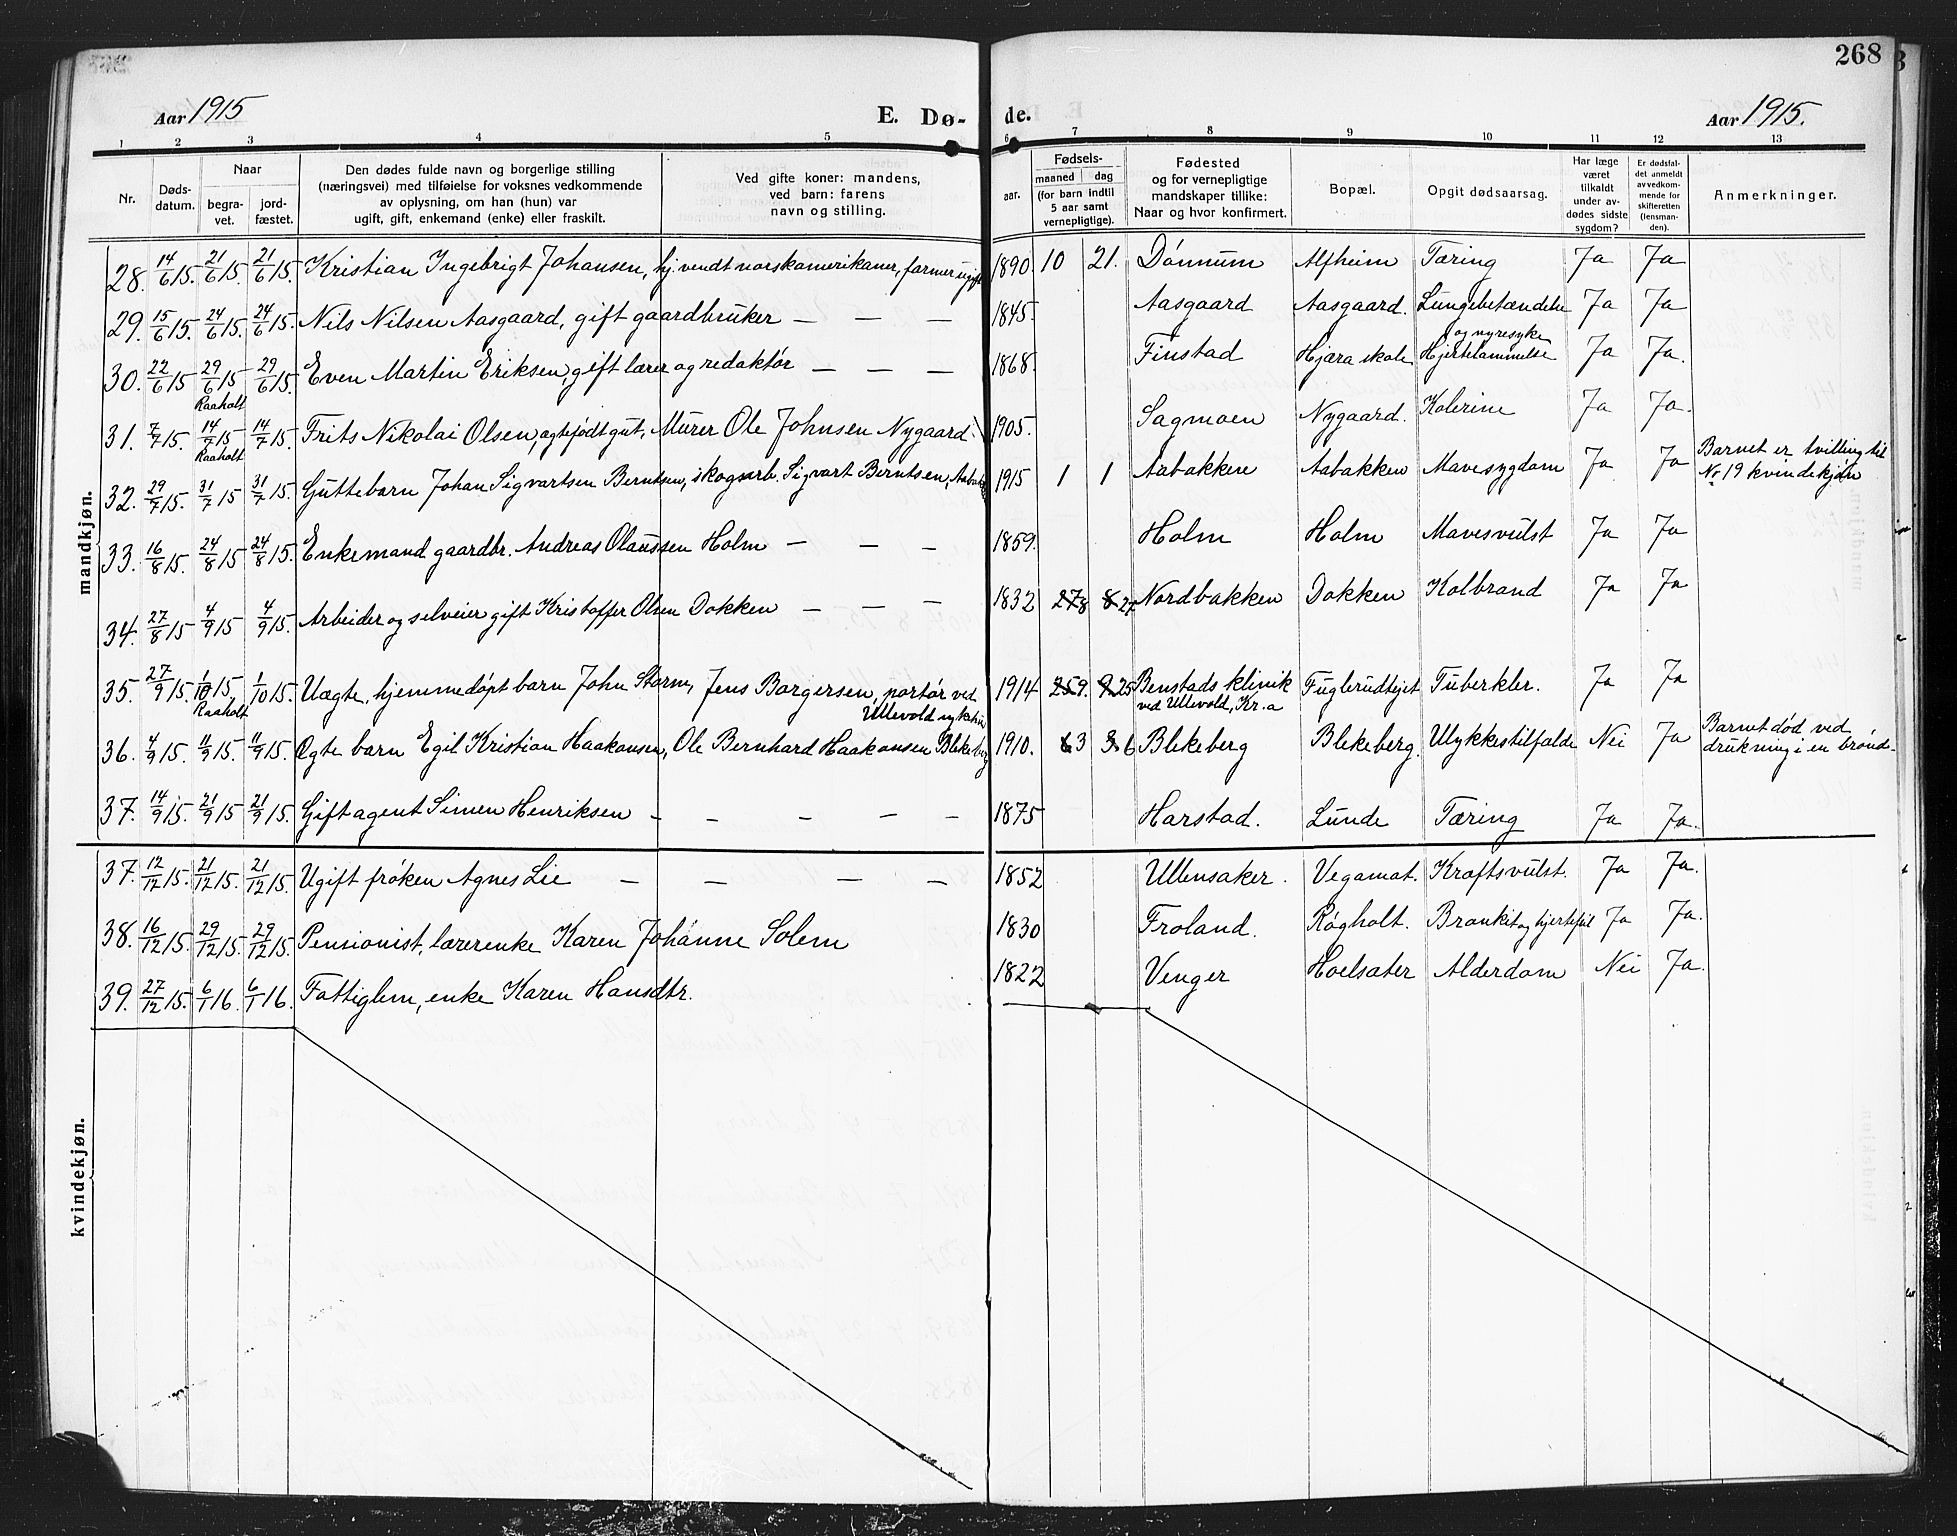 268
Aar 1915 E. Dø- de. Aar 1915.
1 2 3 4 5 6 7 8 9 10 11 12 13
Nr.
Døds-
datum.
Naar
begra-
vet.
jord-
fæstet.
Den dødes fulde navn og borgerlige stilling
(næringsvei) med tilføielse for voksnes vedkommende
av oplysning, om han (hun) var
ugift, gift, enkemand (enke) eller fraskilt.
Ved gifte koner: mandens,
ved barn: farens
navn og stilling.
aar.
Fødsels-
maaned dag
(for barn indtil
5 aar samt
vernepligtige).
Fødested
og for vernepligtige
mandskaper tillike:
Naar og hvor konfirmert.
Bopæl.
Opgit dødsaarsag.
Har læge
været
tilkaldt
under av-
dødes sidste
sygdom?
Er dødsfal-
det anmeldt
av vedkom-
mende for
skifteretten
(lensman-
den).
Anmerkninger.
mandkjøn.
28. 14/6 15. 21/6 15. 21/6 15. Kristian Ingebrigt Johansen, hj.vendt norskamerikaner, farmer ugift 1890. 10 21. Dønnum Alfheim Tæring Ja Ja
29. 15/6 15. 24/6 15. 24/6 15. Nils Nilsen Aasgaard, gift gaardbruker — — — 1845. Aasgaard Aasgaard. Lungebetændelse Ja Ja
og nyresyke
30. 22/6 15 29/6 15 29/6 15. Even Martin Eriksen, gift lærer og redaktør — — — 1868. Finstad Hjæra skole Hjertelammelse Ja Ja.
Raaholt
31. 7/7 15. 14/7 15 14/7 15. Frits Nikolai Olsen, ægtefødt gut, Murer Ole Johnsen Nygaard. 1905. Sagmoen Nygaard. Kolerine Ja Ja.
Raaholt
Barnet er tvilling til
32. 29/7 15. 31/7 15 31/7 15. Guttebarn Johan Sigvartsen Berntsen, skogsarb. Sigvart Berntsen, 1915 1 1 Aabakken Aabakken Mavesygdom Ja Ja Nr 19 kvindekjøn
33. 16/8 15. 24/8 15 24/8 15. Enkemand gaardbr. Andreas Olaussen Holm — — — 1859. Holm Holm Mavesvulst Ja Ja
34. 27/8 15 4/9 15 4/9 15. Arbeider og selveier gift Kristoffer Olsen Dokken — — — 1832 27 8 8 27 Nordbakken Dokken Kolbrand Ja Ja
35. 27/9 15. 1/10 15. 1/10 15. Uægte, hjemmedøpt barn John Storm, Jens Borgersen, portør ved 1914 25 9. 9 25 Benstads klinik Fuglerudhejet Tuberkler. Ja Ja
Raaholt Ullevold sykehus ved Ullevold, Kr.a
36. 4/9 15. 11/9 15. 11/9 15. Ægte barn Egil Kristian Haakonsen, Ole Bernhard Haakonsen Blekeberg 1910. 6 3 3 6 Blekeberg Blekeberg. Ulykkestilfælde Nei Ja Barnet død ved
drukning i en brønd.
37. 14/9 15. 21/9 15 21/9 15. Gift agent Simen Henriksen — — — — — 1875 Harstad. Lunde Tæring Ja Ja.
kvindekjøn.
37. 12/12 15. 21/12 15. 21/12 15. Ugift frøken Agnes Lie — — — — 1852 Ullensaker. Vegamot. Kræftsvulst. Ja Ja.
38. 16/12 15. 29/12 15. 29/12 15. Pensionist, lærerenke Karen Johanne Solem 1830 Froland. Røgholt. Bronkit og hjertefeil Ja Ja.
39. 27/12 15. 6/1 16 6/1 16. Fattiglem, enke Karen Hansdtr. 1822 Venger Hoelsæter Alderdom Nei Ja.